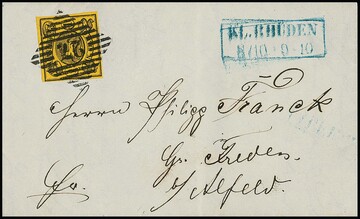 KL. RHÜDEN
8/10 · 9-10
Herrn Philipp Franck
Gr. Freden
a/Alfeld.